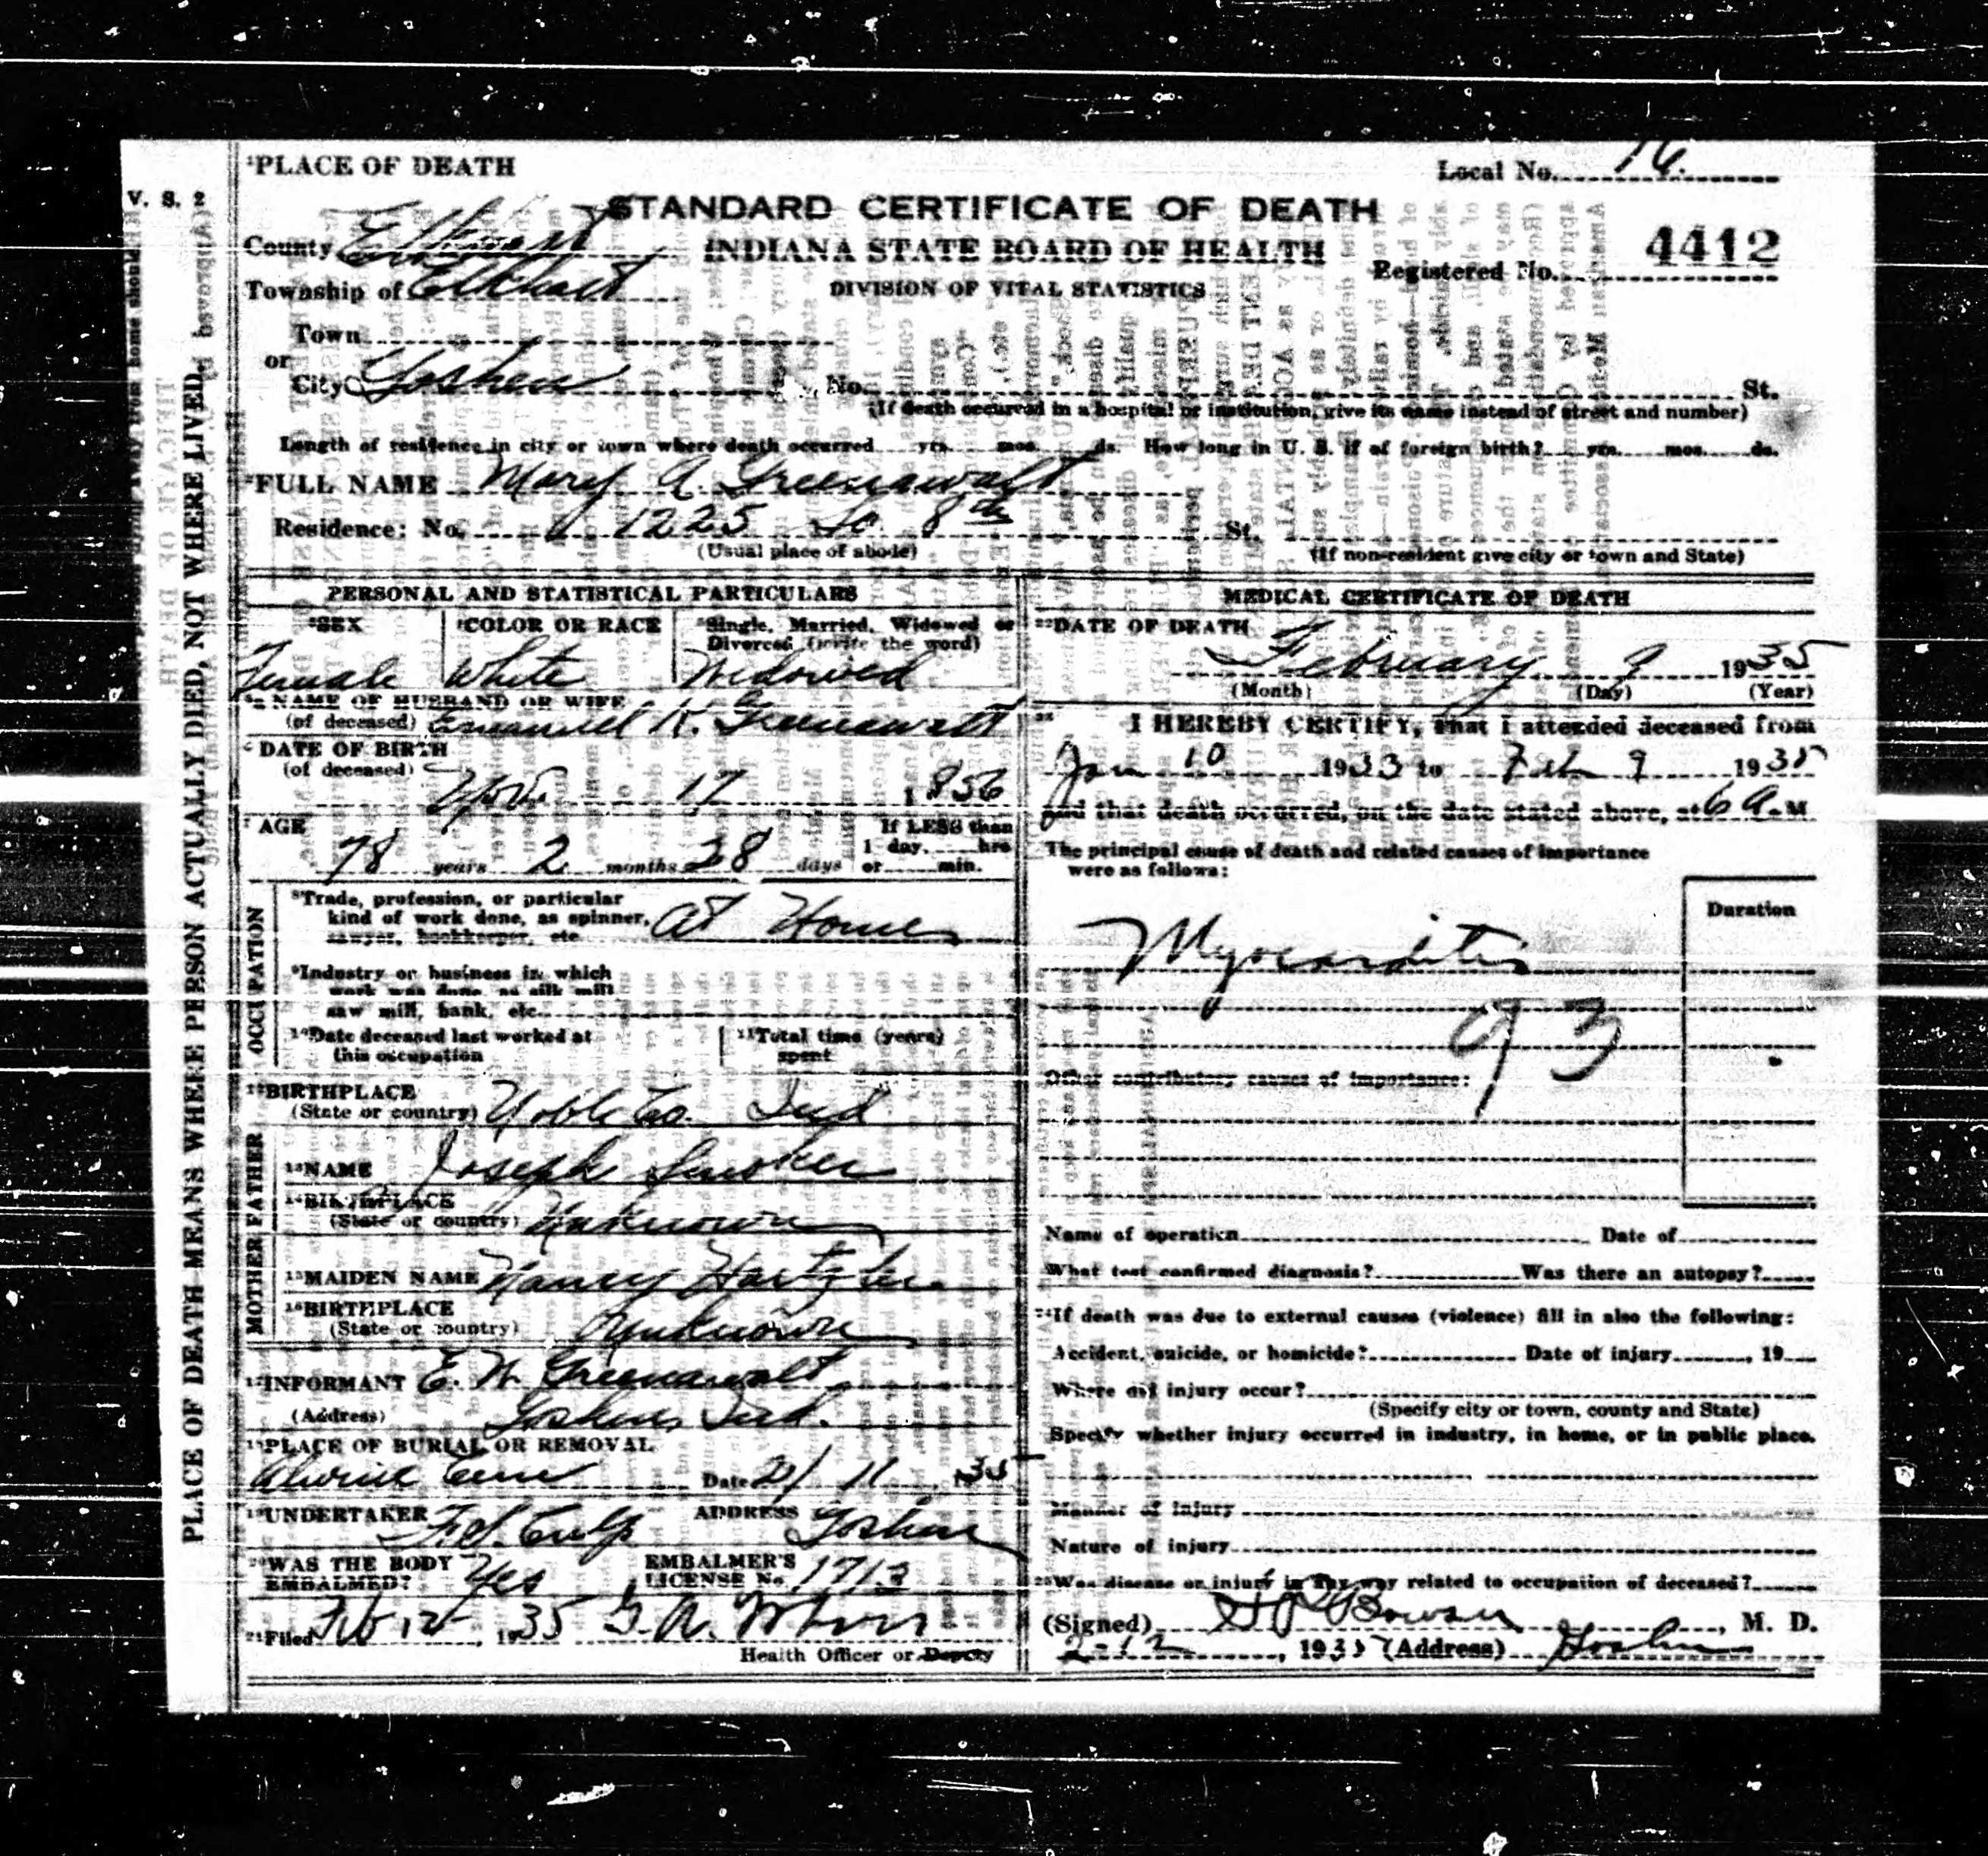 ¹PLACE OF DEATH
Local No. 16
V. S. 2
STANDARD CERTIFICATE OF DEATH
County Elkhart
INDIANA STATE BOARD OF HEALTH
Registered No. 4412
Township of Elkhart
DIVISION OF VITAL STATISTICS
Town
or
City Goshen No. St.
(If death occurred in a hospital or institution, give its name instead of street and number)
Length of residence in city or town where death occurred yrs. mos. ds. How long in U. S. if of foreign birth? yrs. mos. ds.
²FULL NAME Mary A. Greenawalt
Residence: No. 1225 So. 8th St.
(Usual place of abode) (If non-resident give city or town and State)
PLACE OF DEATH MEANS WHERE PERSON ACTUALLY DIED, NOT WHERE LIVED.
PERSONAL AND STATISTICAL PARTICULARS
³SEX
Female
⁴COLOR OR RACE
White
⁵Single, Married, Widowed or
Divorced (write the word)
Widowed
NAME OF HUSBAND OR WIFE
(of deceased) Emanuel K. Greenawalt
⁶DATE OF BIRTH
(of deceased)
Nov. 17 1856
⁷AGE
If LESS than
1 day, hrs
78 years 2 months 28 days or min.
OCCUPATION
⁸Trade, profession, or particular
kind of work done, as spinner,
sawyer, bookkeeper, etc. At Home
⁹Industry or business in which
work was done, as silk mill
saw mill, bank, etc.
¹⁰Date deceased last worked at
this occupation
¹¹Total time (years)
spent
¹²BIRTHPLACE
(State or country) Noble Co. Ind
FATHER
¹³NAME Joseph Smoker
¹⁴BIRTHPLACE
(State or country) Unknown
MOTHER
¹⁵MAIDEN NAME Nancy Hartzler
¹⁶BIRTHPLACE
(State or country) Unknown
¹⁷INFORMANT E. W. Greenawalt
(Address) Goshen, Ind.
¹⁸PLACE OF BURIAL OR REMOVAL
Cem Date 2/ 11, 1935
¹⁹UNDERTAKER F. S. Culp ADDRESS Goshen
²⁰WAS THE BODY
EMBALMED? Yes
EMBALMER'S
LICENSE No. 1713
²¹Filed Feb 12, 1935 G. A.
Health Officer or Deputy
MEDICAL CERTIFICATE OF DEATH
²²DATE OF DEATH
February 9 1935
(Month) (Day) (Year)
²³ I HEREBY CERTIFY, That I attended deceased from
Jan 10 1933 to Feb 9 1935
and that death occurred, on the date stated above, at 6 A.M
The principal cause of death and related causes of importance
were as follows:
Duration
Myocarditis
93
Other contributory causes of importance:
Name of operation Date of
What test confirmed diagnosis? Was there an autopsy?
²⁴If death was due to external causes (violence) fill in also the following:
Accident, suicide, or homicide? Date of injury , 19
Where did injury occur?
(Specify city or town, county and State)
Specify whether injury occurred in industry, in home, or in public place.
Manner of injury
Nature of injury
²⁵Was disease or injury in any way related to occupation of deceased?
(Signed) Bowser, M. D.
2-12, 1935 (Address) Goshen